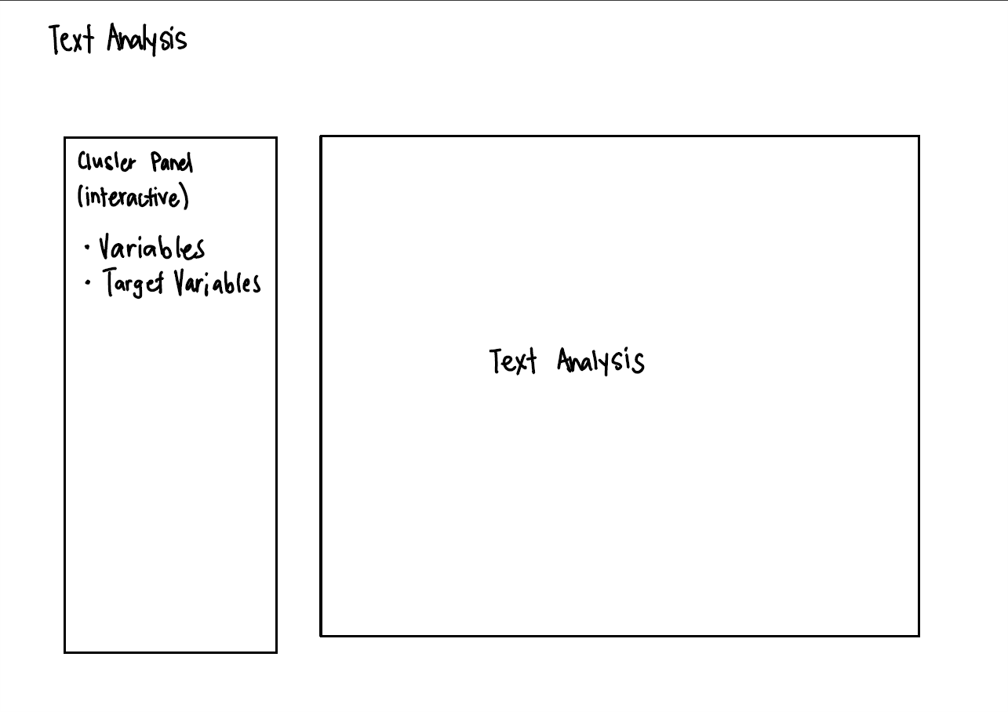 Text Analysis
Cluster Panel
(interactive)
• Variables
• Target Variables
Text Analysis